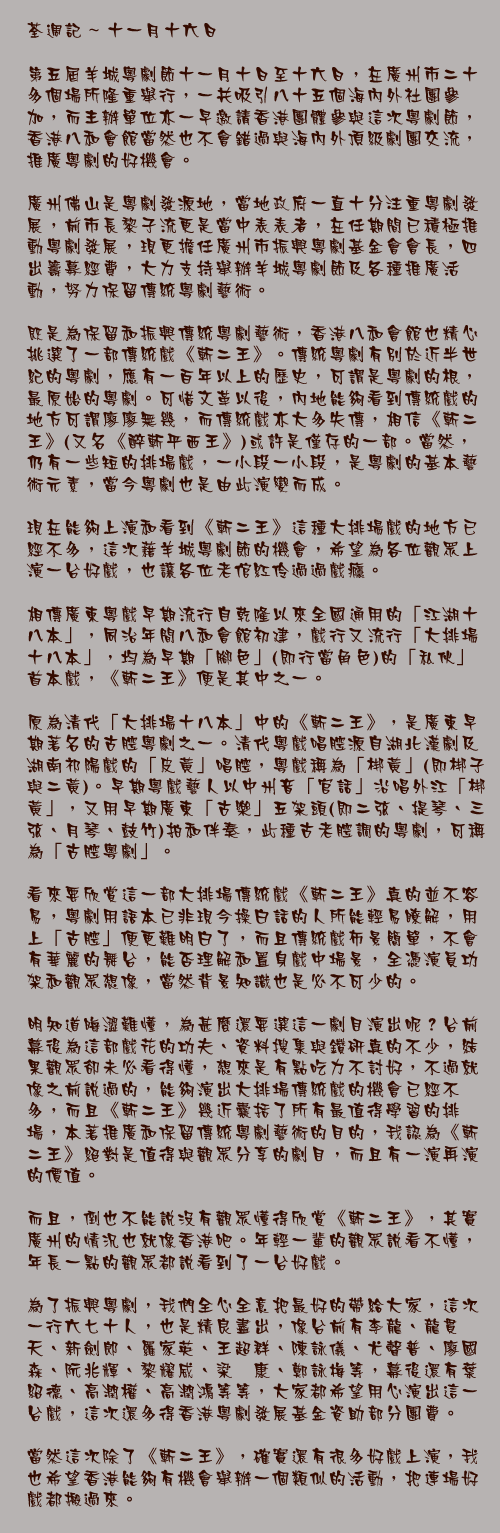 荃週記 ~ 十一月十六日
第五屆羊城粵劇節十一月十日至十六日，在廣州市二十
多個場所隆重舉行，一共吸引八十五個海內外社團參
加，而主辦單位亦一早邀請香港團體參與這次粵劇節，
香港八和會館當然也不會錯過與海內外頂級劇團交流，
推廣粵劇的好機會。
廣州佛山是粵劇發源地，當地政府一直十分注重粵劇發
展，前市長黎子流更是當中表表者，在任期間已積極推
動粵劇發展，現更擔任廣州市振興粵劇基金會會長，四
出籌募經費，大力支持舉辦羊城粵劇節及各種推廣活
動，努力保留傳統粵劇藝術。
既是為保留和振興傳統粵劇藝術，香港八和會館也精心
挑選了一部傳統戲《斬二王》。傳統粵劇有別於近半世
紀的粵劇，應有一百年以上的歷史，可謂是粵劇的根，
最原始的粵劇。可惜文革以後，內地能夠看到傳統戲的
地方可謂廖廖無幾，而傳統戲亦大多失傳，相信《斬二
王》(又名《醉斬平西王》)或許是僅存的一部。當然，
仍有一些短的排場戲，一小段一小段，是粵劇的基本藝
術元素，當今粵劇也是由此演變而成。
現在能夠上演和看到《斬二王》這種大排場戲的地方已
經不多，這次藉羊城粵劇節的機會，希望為各位觀眾上
演一台好戲，也讓各位老倌紅伶過過戲癮。
相傳廣東粵戲早期流行自乾隆以來全國通用的「江湖十
八本」，同治年間八和會館初建，戲行又流行「大排場
十八本」，均為早期「腳色」(即行當角色)的「私伙」
首本戲，《斬二王》便是其中之一。
原為清代「大排場十八本」中的《斬二王》，是廣東早
期著名的古腔粵劇之一。清代粵戲唱腔源自湖北漢劇及
湖南祁陽戲的「皮黃」唱腔，粵戲稱為「梆黃」(即梆子
與二黃)。早期粵戲藝人以中州音「官話」沿唱外江「梆
黃」，又用早期廣東「古樂」五架頭(即二弦、提琴、三
弦、月琴、鼓竹)拍和伴奏，此種古老腔調的粵劇，可稱
為「古腔粵劇」。
看來要欣賞這一部大排場傳統戲《斬二王》真的並不容
易，粵劇用語本已非現今操白話的人所能輕易曉解，用
上「古腔」便更難明白了，而且傳統戲布景簡單，不會
有華麗的舞台，能否理解和置身戲中場景，全憑演員功
架和觀眾想像，當然背景知識也是必不可少的。
明知道晦澀難懂，為甚麼還要選這一劇目演出呢？台前
幕後為這部戲花的功夫、資料搜集與鑽研真的不少，結
果觀眾卻未必看得懂，想來是有點吃力不討好，不過就
像之前說過的，能夠演出大排場傳統戲的機會已經不
多，而且《斬二王》幾近囊括了所有最值得學習的排
場，本著推廣和保留傳統粵劇藝術的目的，我認為《斬
二王》絕對是值得與觀眾分享的劇目，而且有一演再演
的價值。
而且，倒也不能說沒有觀眾懂得欣賞《斬二王》，其實
廣州的情況也就像香港吧。年輕一輩的觀眾說看不懂，
年長一點的觀眾都說看到了一台好戲。
為了振興粵劇，我們全心全意把最好的帶給大家，這次
一行六七十人，也是精良盡出，像台前有李龍、龍貫
天、新劍郎、羅家英、王超群、陳詠儀、尤聲普、廖國
森、阮兆輝、黎耀威、梁　康、鄭詠梅等，幕後還有葉
紹德、高潤權、高潤鴻等等，大家都希望用心演出這一
台戲，這次還多得香港粵劇發展基金資助部分團費。
當然這次除了《斬二王》，確實還有很多好戲上演，我
也希望香港能夠有機會舉辦一個類似的活動，把連場好
戲都搬過來。